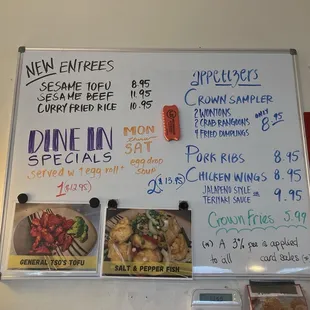 NEW ENTREES
SESAME TOFU 8.95
SESAME BEEF 11.95
CURRY FRIED RICE 10.95
DINE IN
SPECIALS
served w/ "egg roll"
MON
SAT
egg drop
soup
1 $(12.95)
2 $(13.95)
appetizers
CROWN SAMPLER
2 WONTONS
2 CRAB RANGOONS
4 FRIED DUMPLINGS
only
8.95
PORK RIBS 8.95
CHICKEN WINGS 8.95
JALAPEÑO STYLE =
TERIYAKI SAUCE 9.95
CROWN FRIES 5.99
(*) A 3% fee is applied
to all card sales (*
GENERAL TSO'S TOFU
SALT & PEPPER FISH